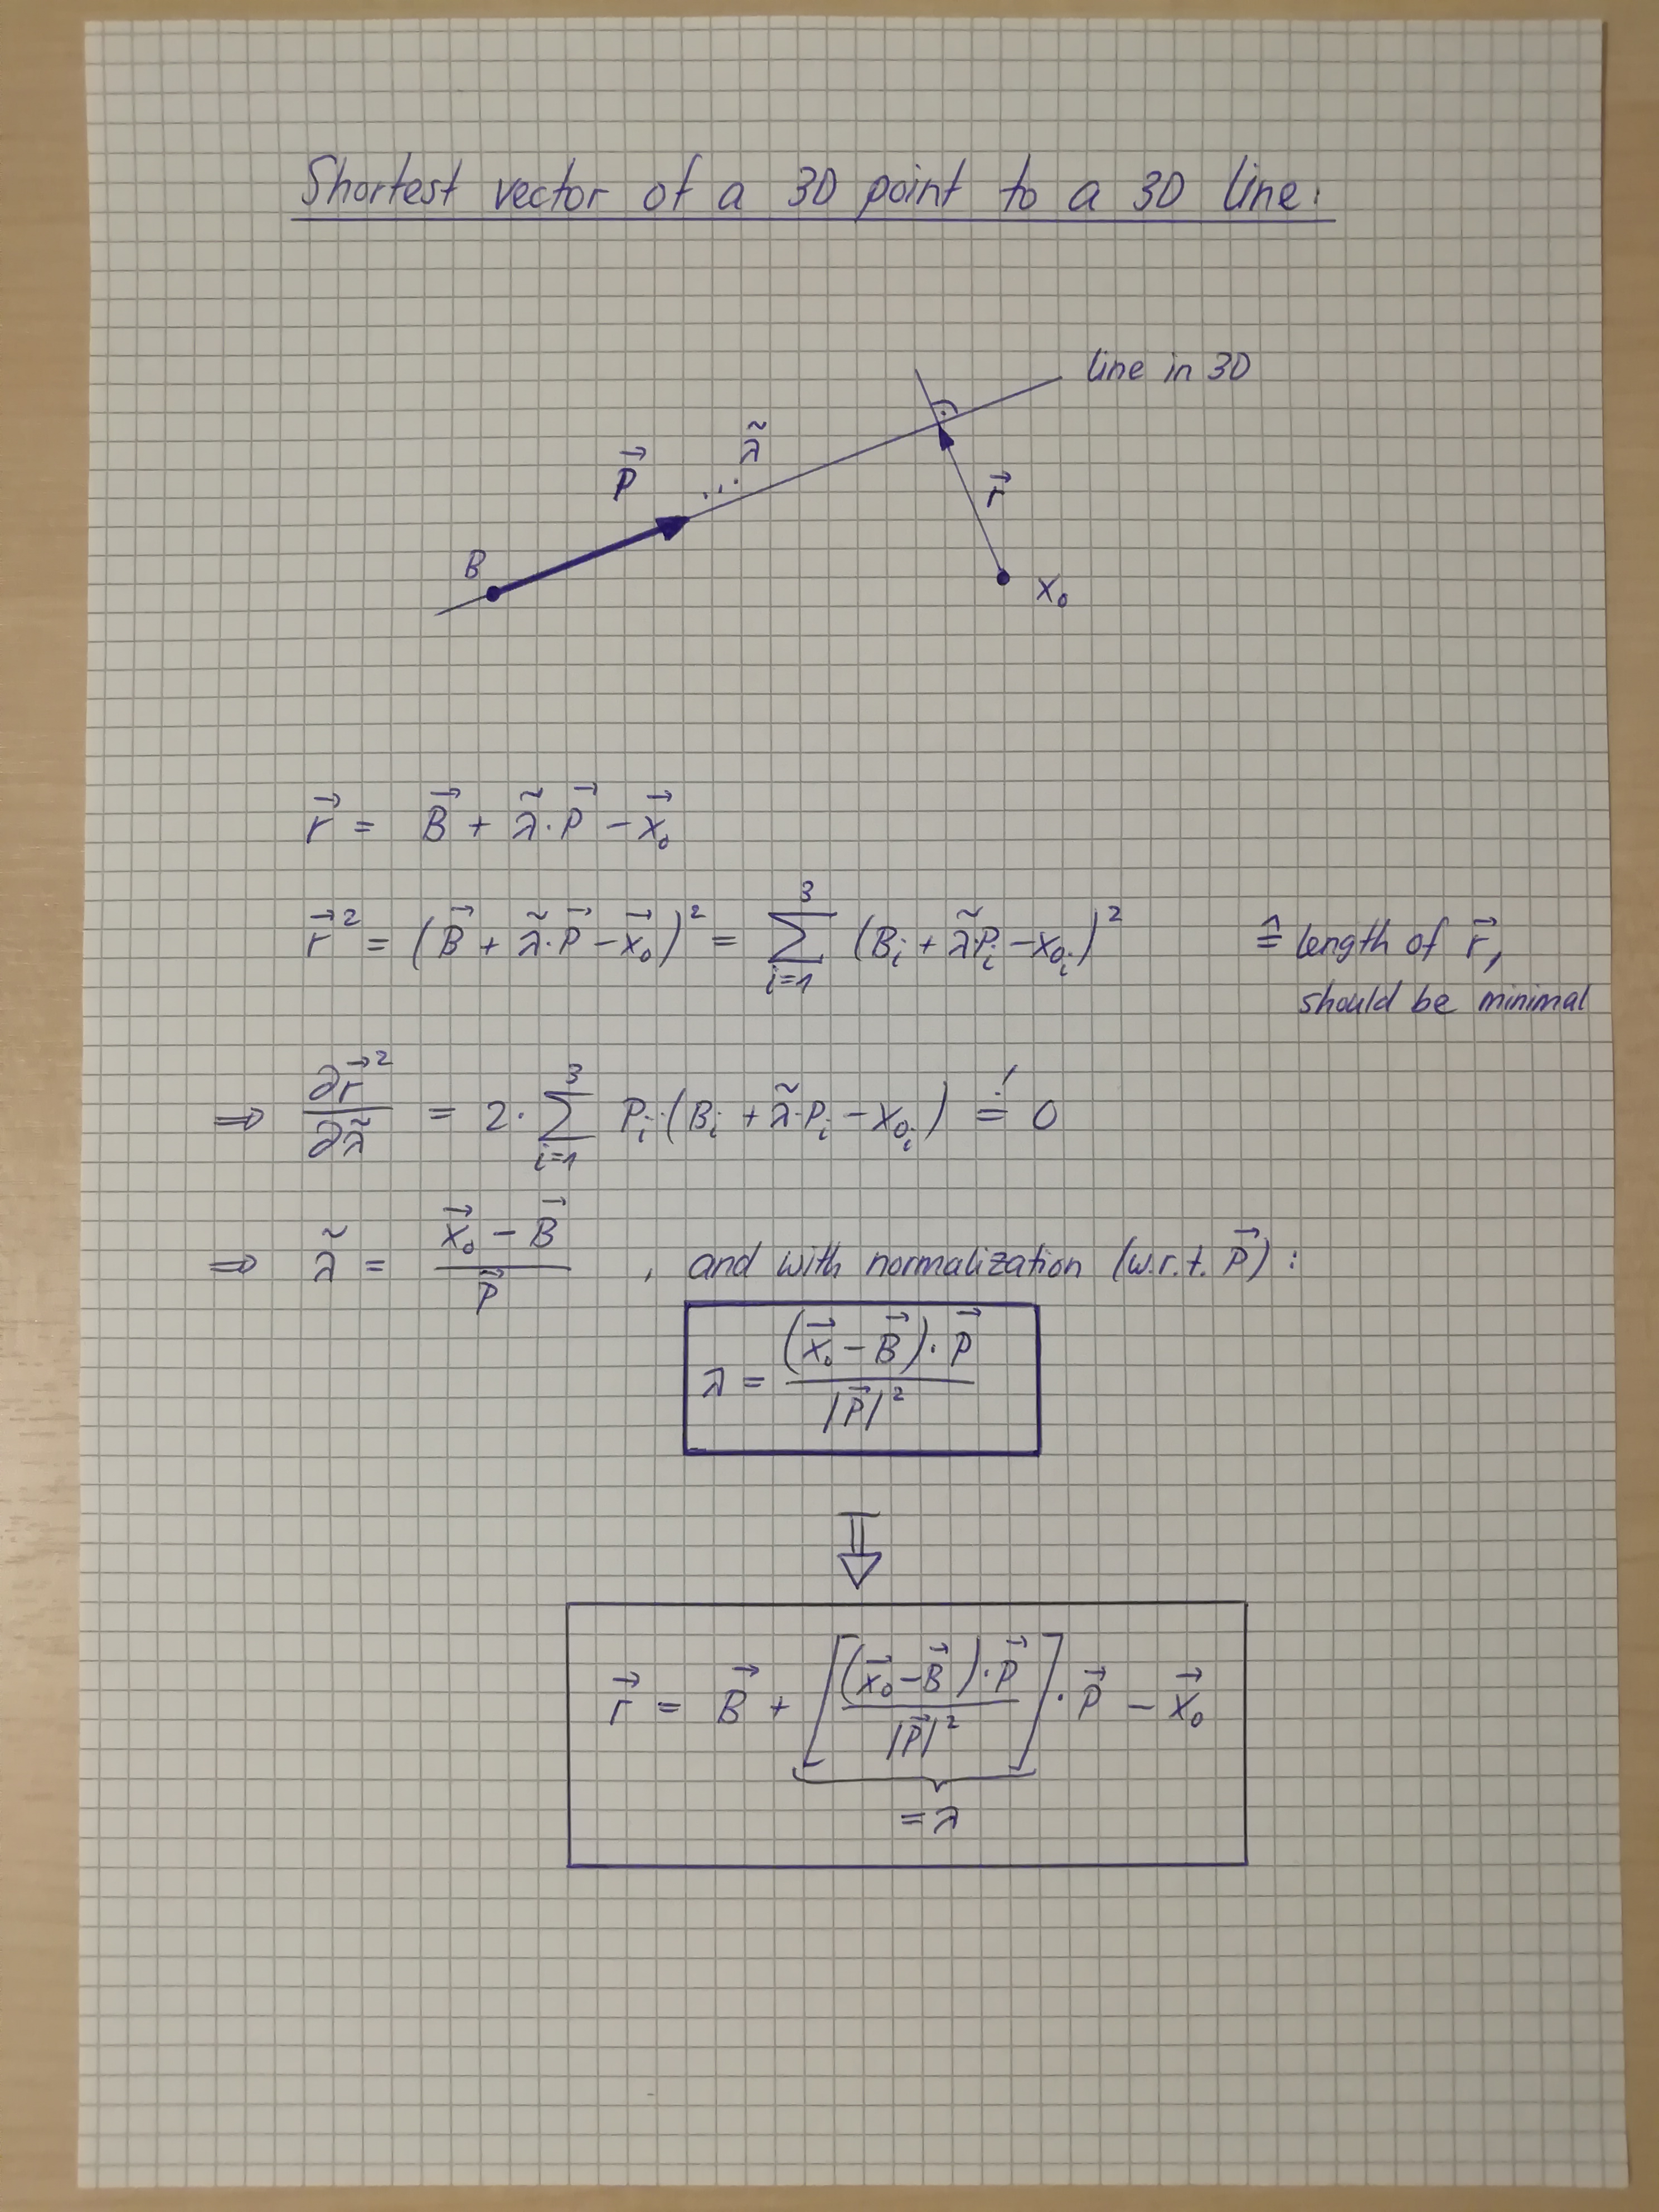 Shortest vector of a 3D point to a 3D line:
line in 3D
λ̃
P⃗ ...
r⃗
B
x₀
r⃗ = B⃗ + λ̃·P⃗ − x⃗₀
r⃗² = (B⃗ + λ̃·P⃗ − x⃗₀)² = ∑_{i=1}^{3} (B_i + λ̃P_i − x_{0_i})² ≙ length of r⃗,
should be minimal
⇒ ∂r⃗²/∂λ̃ = 2·∑_{i=1}^{3} P_i·(B_i + λ̃·P_i − x_{0_i}) =! 0
⇒ λ̃ = (x⃗₀ − B⃗)/P⃗ , and with normalization (w.r.t. P⃗):
λ = ((x⃗₀ − B⃗)·P⃗)/|P⃗|²
⇓
r⃗ = B⃗ + [((x⃗₀ − B⃗)·P⃗)/|P⃗|²]·P⃗ − x⃗₀
= λ